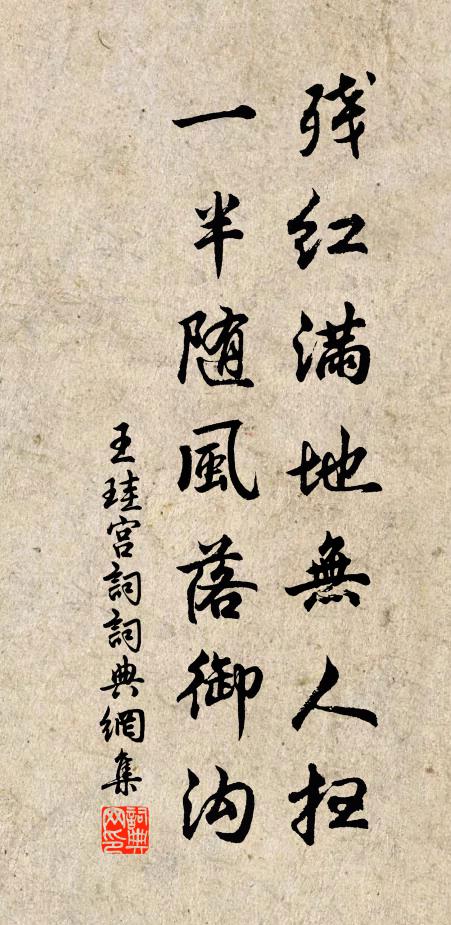 残红滿地無人扫
一半随風落御沟
王珪宫詞詞典網集
詞典网印